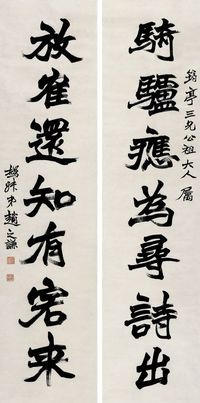 亭三兄公祖大人屬
騎驢應為尋詩出
放隺還知有客来
撝叔弟趙之謙